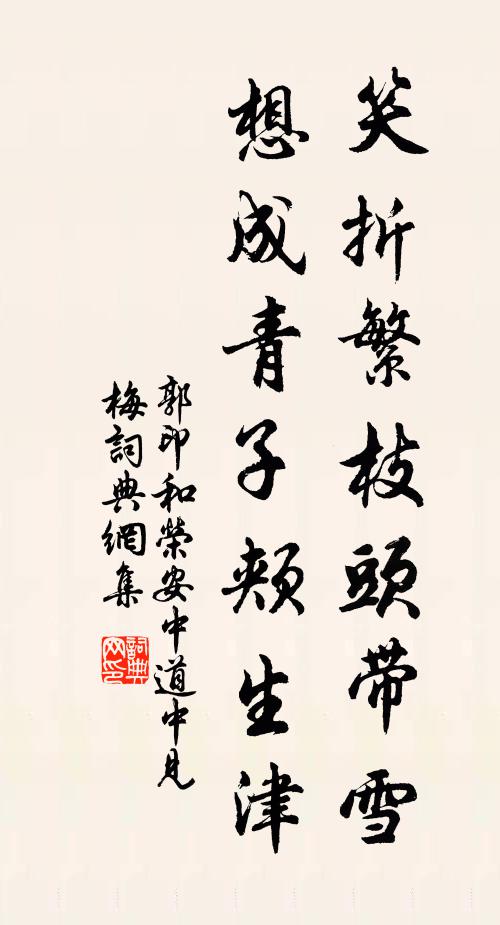 笑折繁枝頭带雪
想成青子頰生津
郭印和榮安中道中見
梅詞典網集
詞典
网印